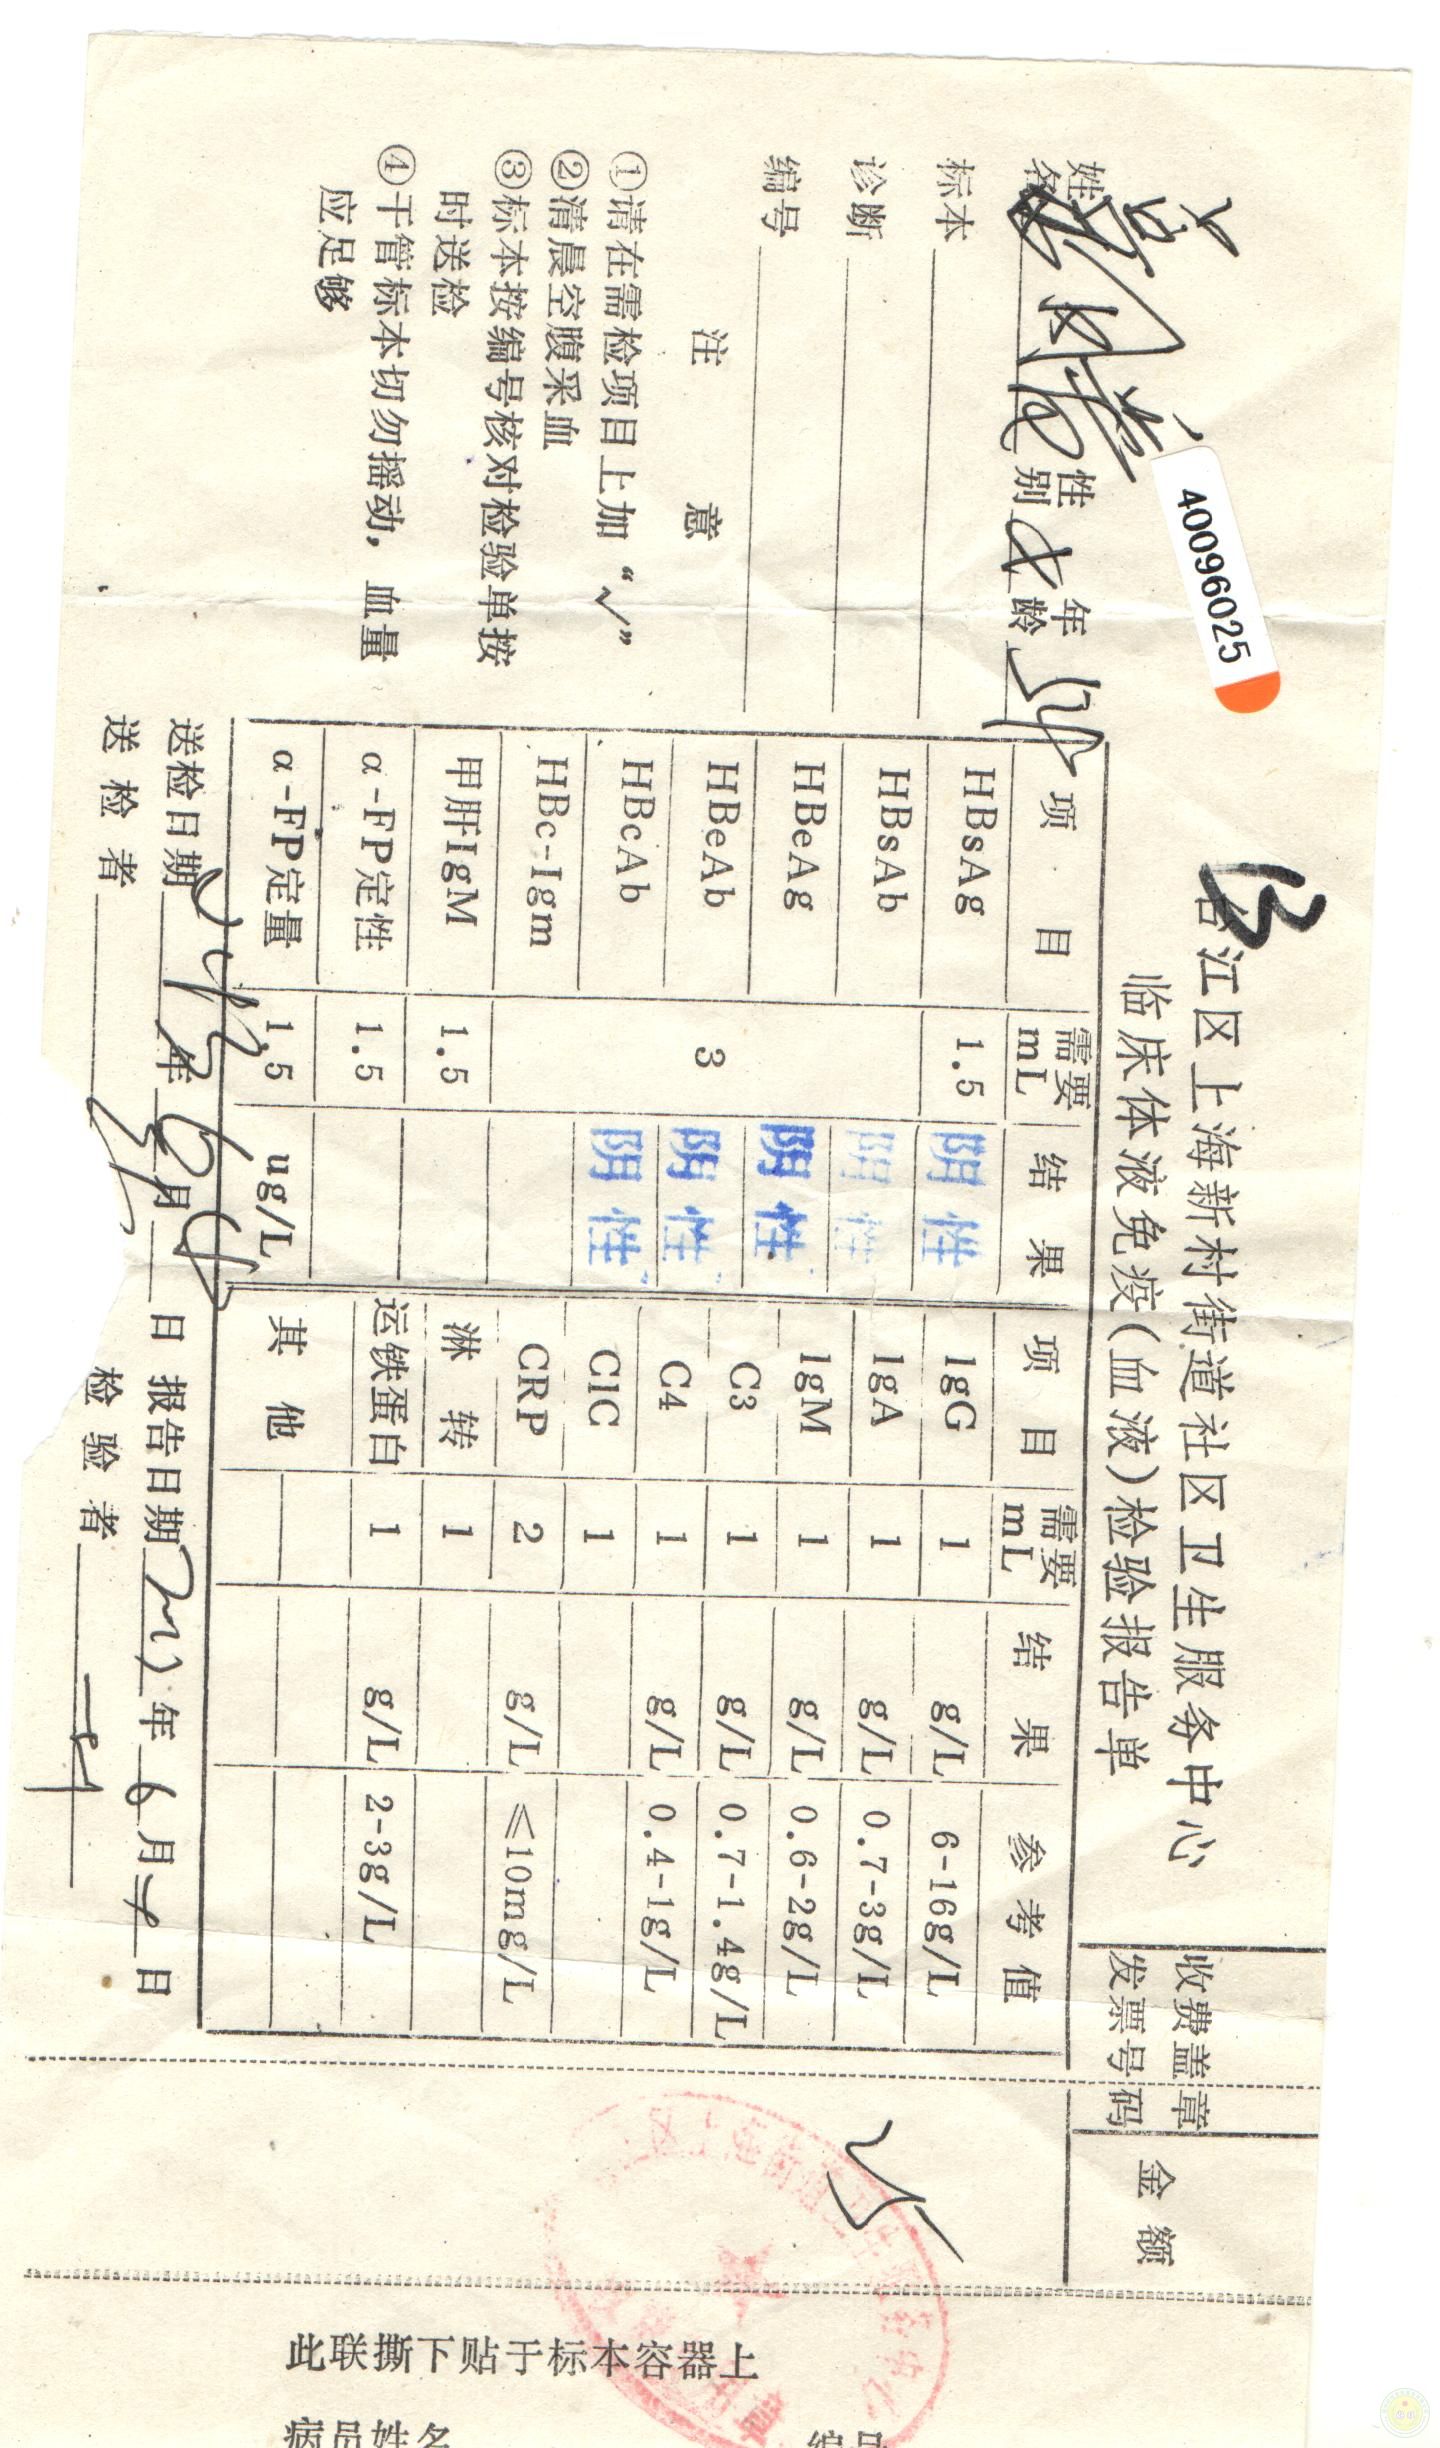 40096025
台江区上海新村街道社区卫生服务中心
临床体液免疫(血液)检验报告单
收费盖章
发票号码
金额
姓名
性别 女
年龄
标本
诊断
编号
注意
①请在需检项目上加“√”
②清晨空腹采血
③标本按编号核对检验单按
时送检
④干管标本切勿摇动，血量
应足够
项目 需要mL 结果 项目 需要mL 结果 参考值
HBsAg 1.5 阴性 1gG 1 g/L 6-16g/L
HBsAb 阴性 1gA 1 g/L 0.7-3g/L
HBeAg 阴性 1gM 1 g/L 0.6-2g/L
HBeAb 3 阴性 C3 1 g/L 0.7-1.4g/L
HBcAb 阴性 C4 1 g/L 0.4-1g/L
HBc-Igm C1C 1
甲肝IgM 1.5 CRP 2 g/L ≤10mg/L
α-FP定性 1.5 淋转 1
α-FP定量 1.5 ug/L 运铁蛋白 1 g/L 2-3g/L
其他
送检日期 年 6 月 日 报告日期 年 6 月 日
送检者 检验者
此联撕下贴于标本容器上
病员姓名 编号